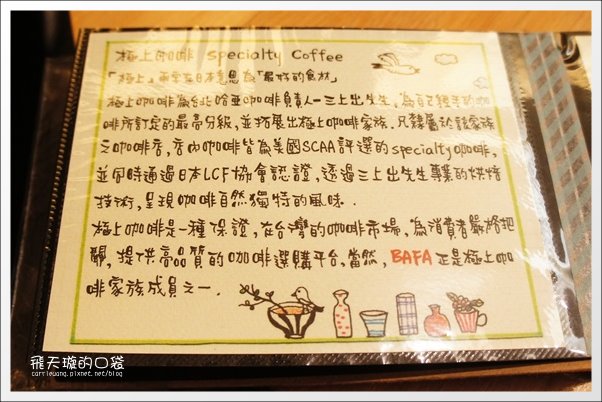 極上咖啡 Specialty Coffee
「極上」兩字在日本意思為「最好的食材」
極上咖啡為台北哈亞咖啡負責人一三上出先生,為自己經手的咖
啡所訂定的最高分級,並拓展出極上咖啡家族。凡隸屬於該家族
之咖啡店,店內咖啡皆為美國SCAA評選的specialty咖啡,
並同時通過日本LCF協會認證,透過三上出先生專業的烘焙
技術,呈現咖啡自然獨特的風味.
極上咖啡是一種保證,在台灣的咖啡市場,為消費者嚴格把
關,提供高品質的咖啡選購平台,當然,BAFA正是極上咖
啡家族成員之一.
飛天璇的口袋
carrieuang.pixnet.net/blog